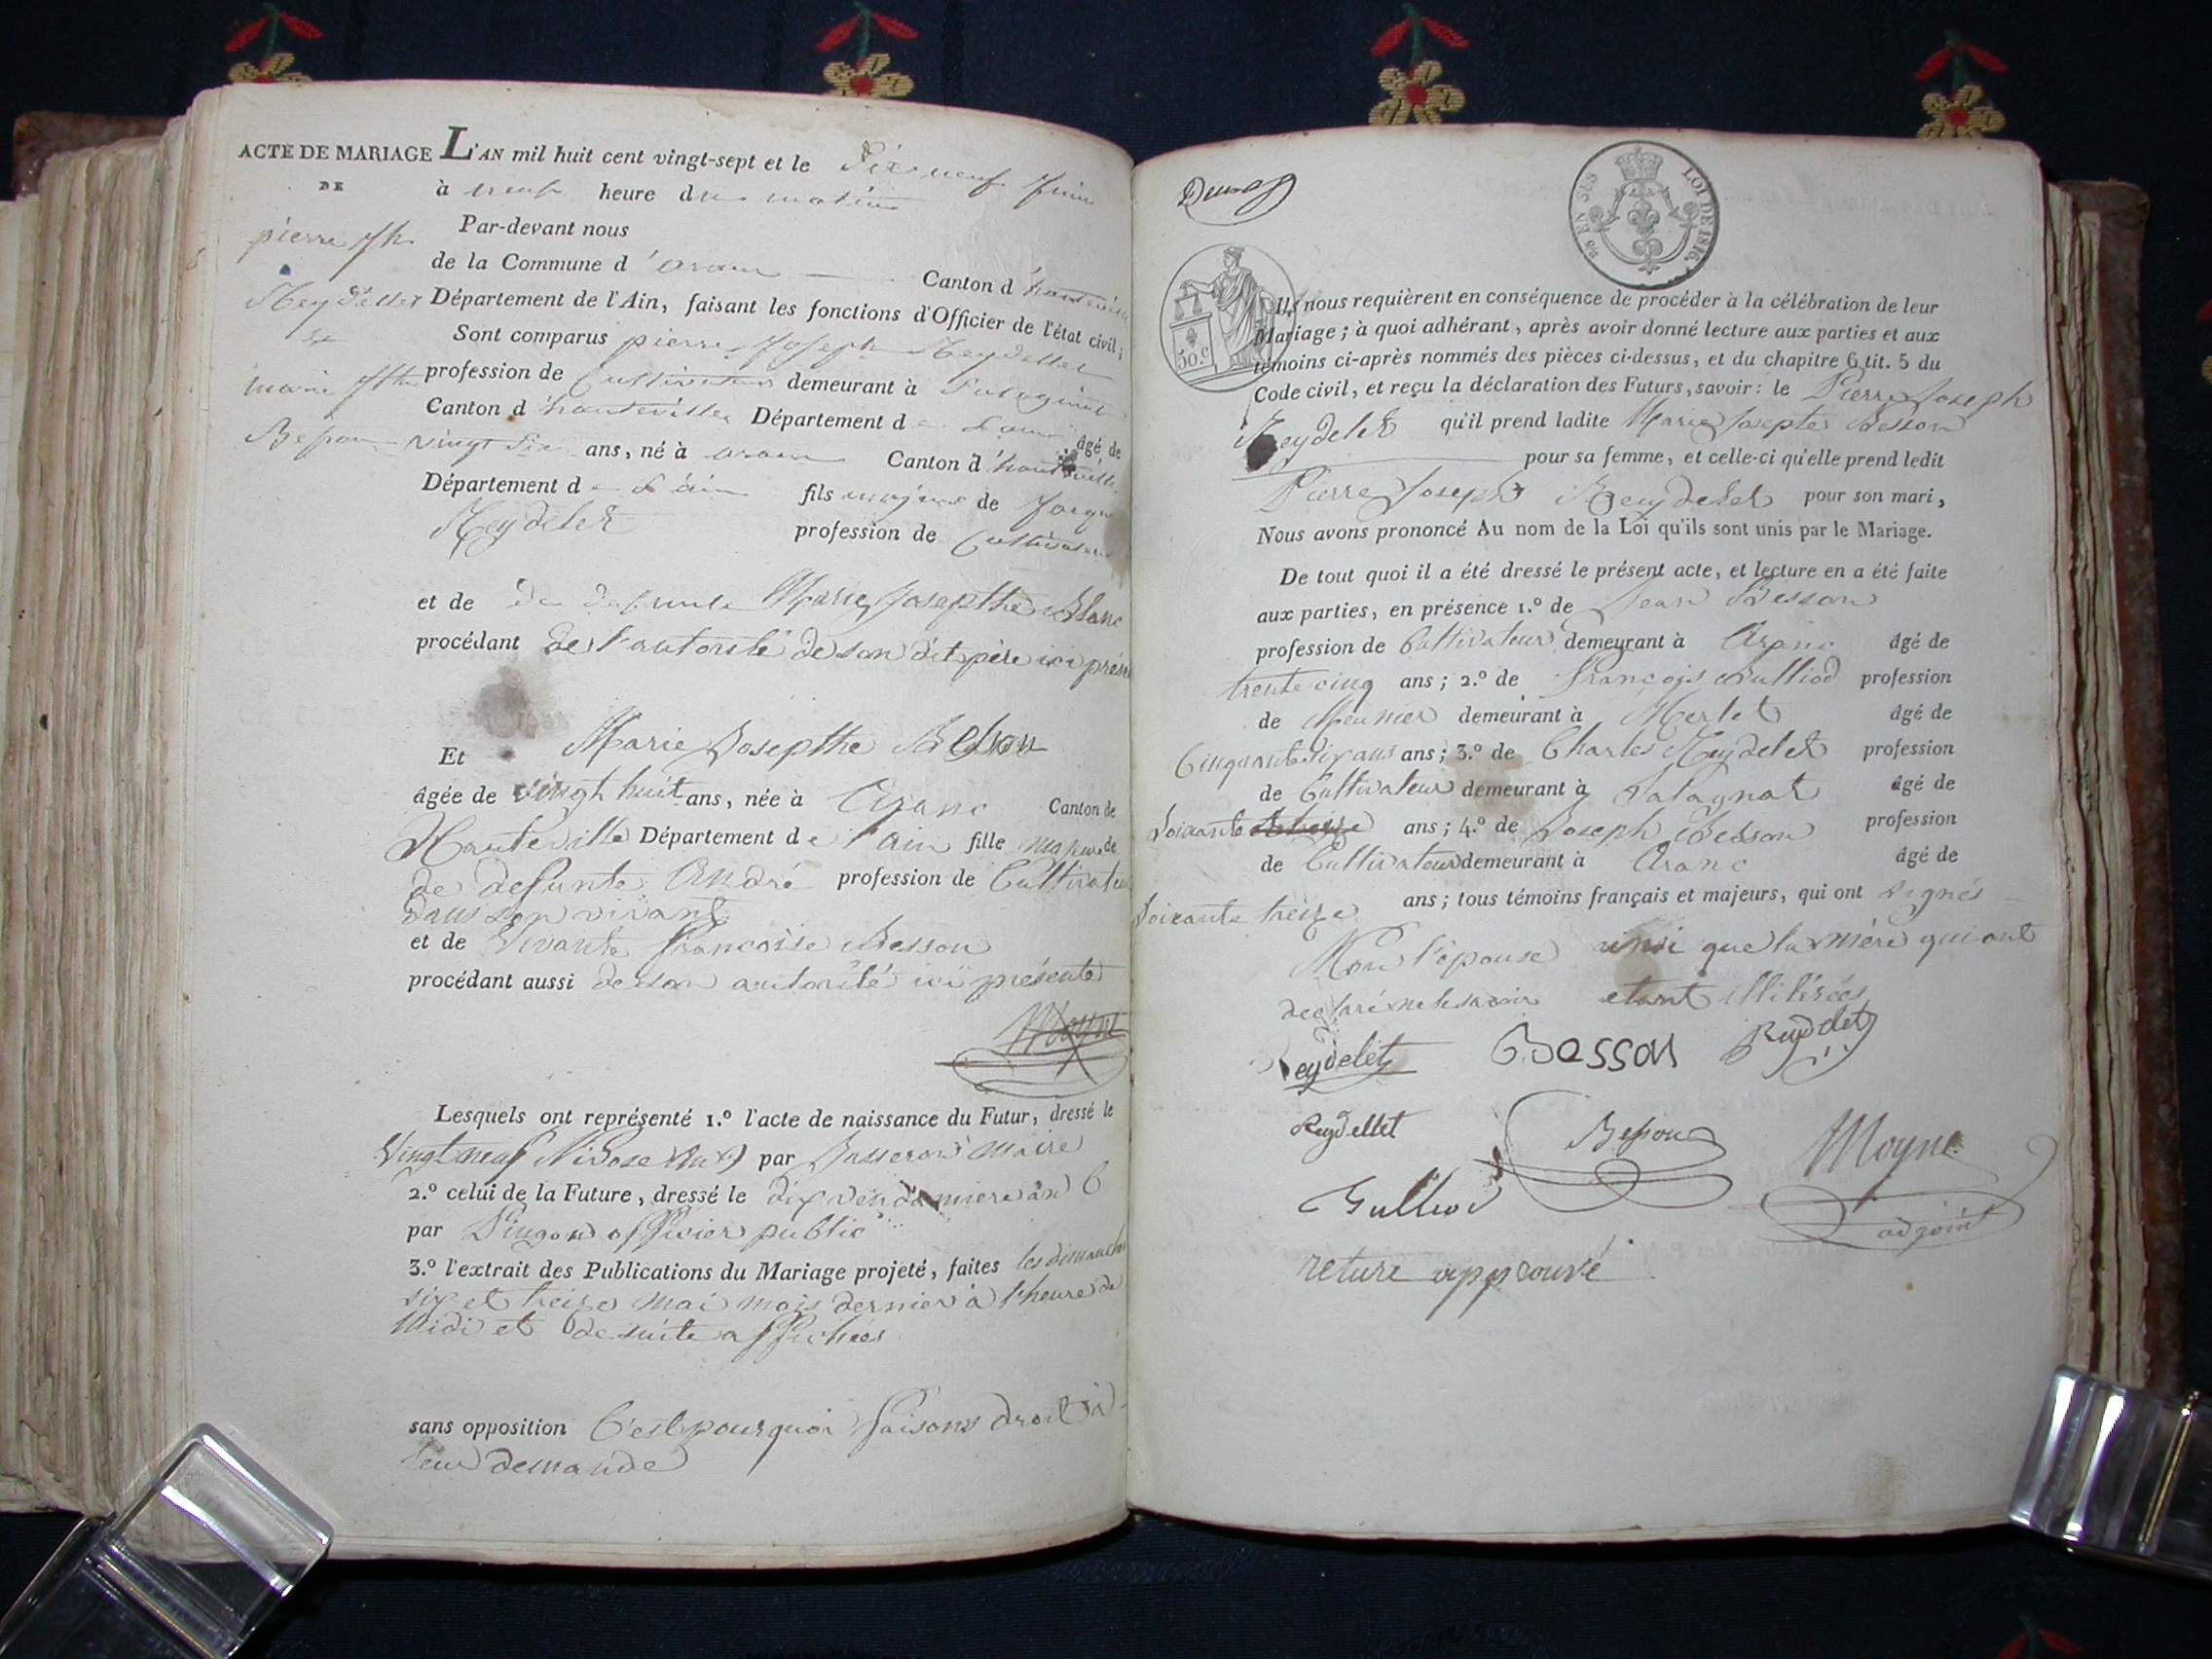 ACTE DE MARIAGE
DE
pierre Jh
Reydellet
&
marie Jthe
Besson
L'AN mil huit cent vingt-sept et le Dix neuf Juin
à neuf heure du matin
Par-devant nous
de la Commune d'aranc Canton d'hauteville
Département de l'Ain, faisant les fonctions d'Officier de l'état civil;
Sont comparus pierre Joseph Reydellet
profession de Cultivateur demeurant à
Canton d'hauteville Département de Lain âgé de
vingt six ans, né à aranc Canton d'hauteville
Département de L'ain fils majeur de Jacque
Reydelet profession de Cultivateur
et de de defunte Marie Josepthe Blanc
procédant de l'autorité de son dit père ici présent
Et Marie Josepthe Besson
âgée de vingt huit ans, née à Aranc Canton de
Hauteville Département de l'Ain fille majeure de
de defunte André profession de Cultivateur
dans son vivant
et de Vivante Francoise Besson
procédant aussi de son autorité ici présente
Moyne
Lesquels ont représenté 1.º l'acte de naissance du Futur, dressé le
Vingt neuf Nivose par Maire
2.º celui de la Future, dressé le dix vendemiere an 6
par officier public
3.º l'extrait des Publications du Mariage projeté, faites les dimanches
six et treize mai mois dernier à l'heure de
Midi et de suite affichées
sans opposition C'est pourquoi faisons droit à
leur demande
LOI DE 1816.
50.c
Ils nous requièrent en conséquence de procéder à la célébration de leur
Mariage; à quoi adhérant, après avoir donné lecture aux parties et aux
témoins ci-après nommés des pièces ci-dessus, et du chapitre 6 tit. 5 du
Code civil, et reçu la déclaration des Futurs, savoir: le Pierre Joseph
Reydelet qu'il prend ladite Marie Josepte Besson
pour sa femme, et celle-ci qu'elle prend ledit
Pierre Joseph Reydelet pour son mari,
Nous avons prononcé Au nom de la Loi qu'ils sont unis par le Mariage.
De tout quoi il a été dressé le présent acte, et lecture en a été faite
aux parties, en présence 1.º de Jean Besson
profession de Cultivateur demeurant à Aranc âgé de
trente cinq ans; 2.º de François Bulliod profession
de Meunier demeurant à Merlet âgé de
Cinquante six ans ans; 3.º de Charles Reydelet profession
de Cultivateur demeurant à Palagnat âgé de
Soixante ans; 4.º de Joseph Besson profession
de Cultivateur demeurant à Aranc âgé de
Soixante treize ans; tous témoins français et majeurs, qui ont signés
Non l'épouse ainsi que la mère qui ont
declaré ne le savoir etant illitérées
Reydelet Besson Reydelet
Reydellet Besson Moyne
Bulliod adjoint
rature approuvé